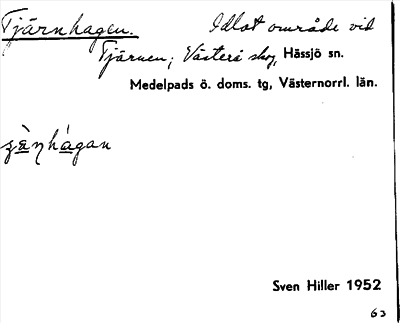 Tjärnhagen. Idlat område vid
Tjärnen, Västerå skog, Hässjö sn.
Medelpads ö. doms. tg, Västernorrl. län.
Sven Hiller 1952
63